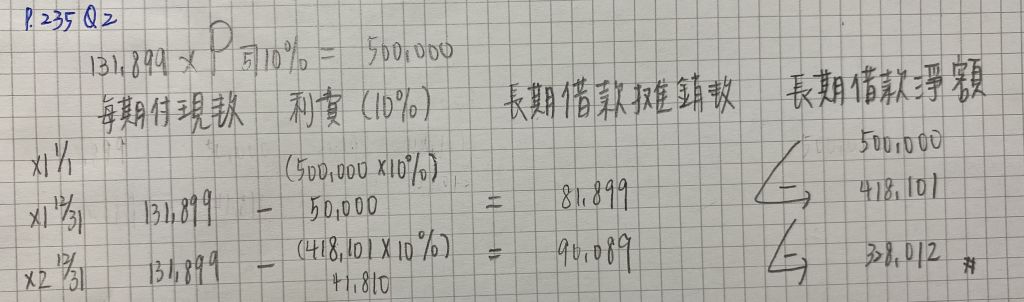 P.235 Q2
131,899 × P 5|10% = 500,000
每期付現數 利費(10%) 長期借款攤銷數 長期借款淨額
X1 1/1 500,000
(500,000 × 10%)
X1 12/31 131,899 - 50,000 = 81,899 418,101
X2 12/31 131,899 - (418,101 × 10%) = 90,089 328,012 #
41,810